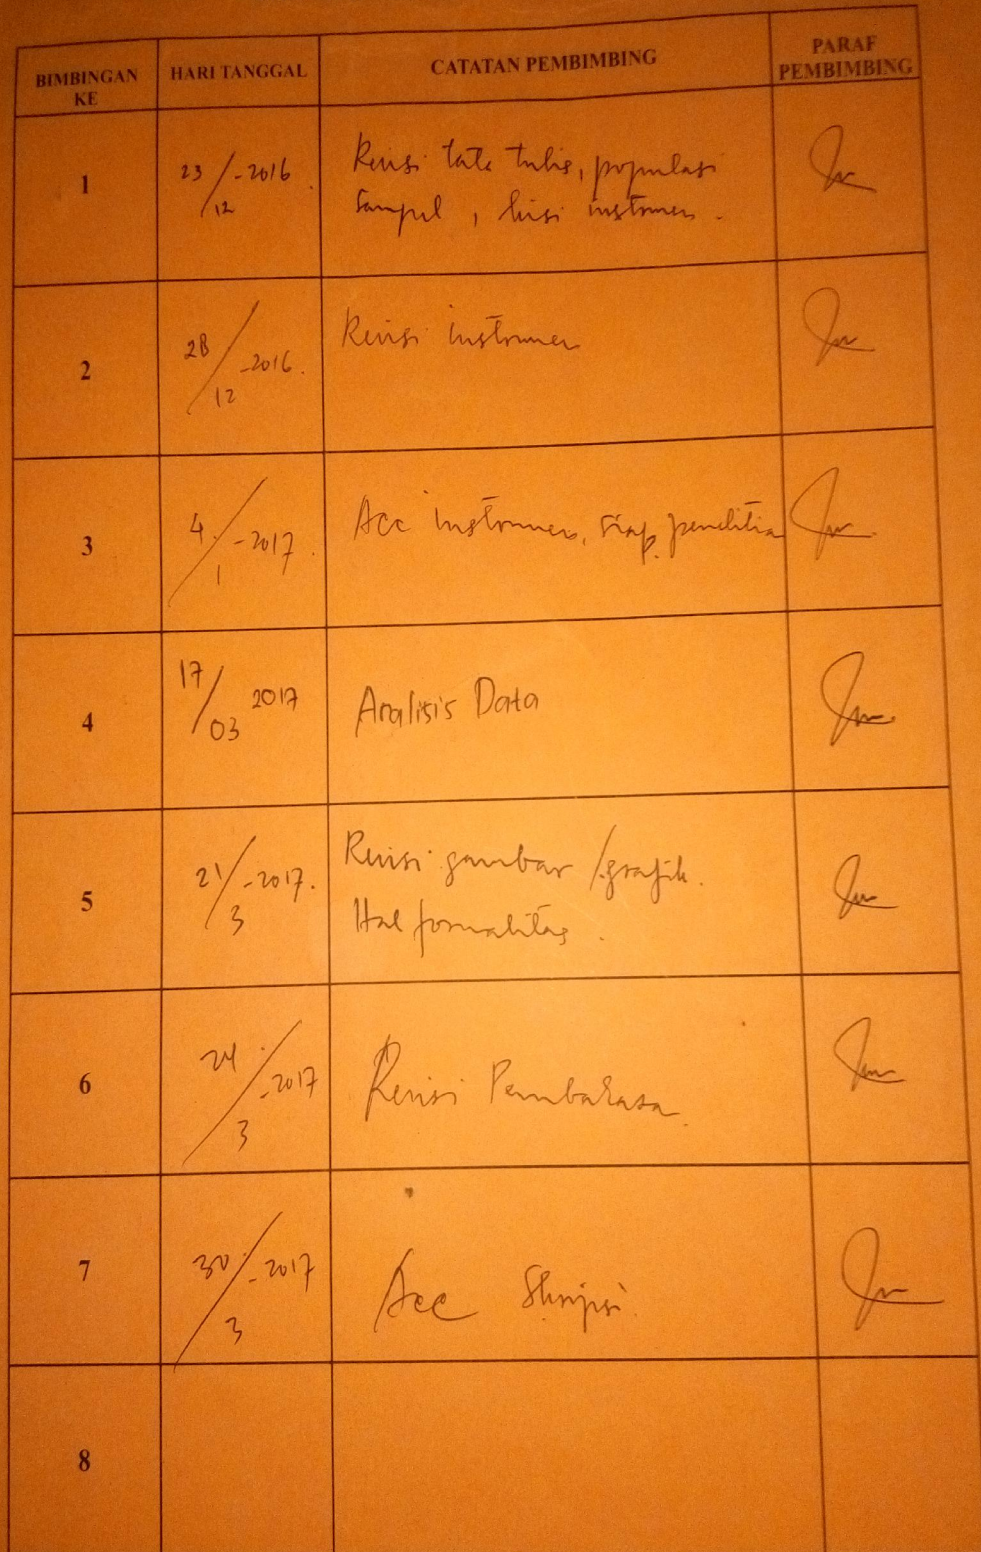 BIMBINGAN KE
HARI TANGGAL
CATATAN PEMBIMBING
PARAF PEMBIMBING
1
23/12-2016
Revisi tata tulis, populasi
Sampel, kisi instrumen.
2
28/12-2016.
Revisi instrumen
3
4/1-2017.
Acc instrumen, siap penelitia
4
17/03 2017
Analisis Data
5
21/3-2017.
Revisi gambar/grafik.
Hal formalitas.
6
24/3-2017
Revisi Pembahasa
7
30/3-2017
Acc Skripsi
8